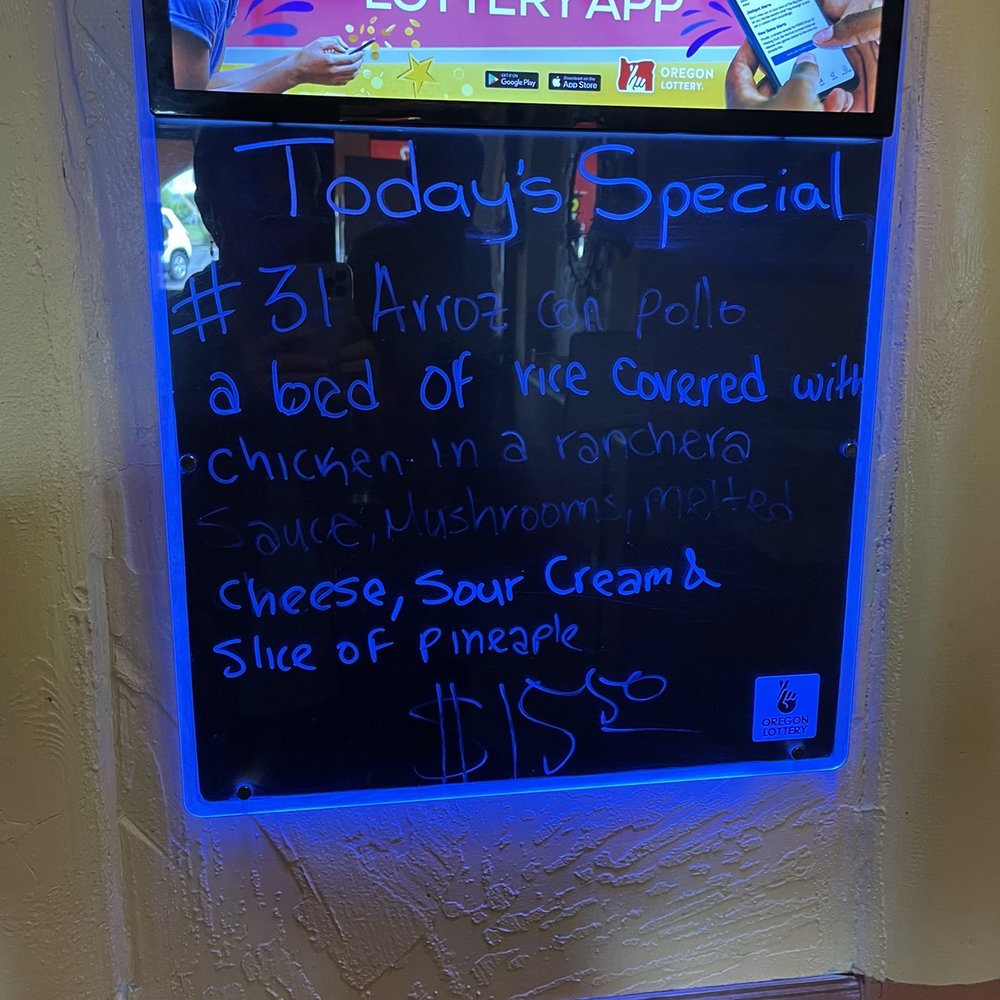 LOTTERY APP
GET IT ON
Google Play
Download on the
App Store
OREGON
LOTTERY
Today's Special
# 31 Arroz con pollo
a bed of rice covered with
chicken in a ranchera
Sauce, Mushrooms, melted
cheese, Sour Cream &
Slice of pineaple
$15.50
OREGON
LOTTERY